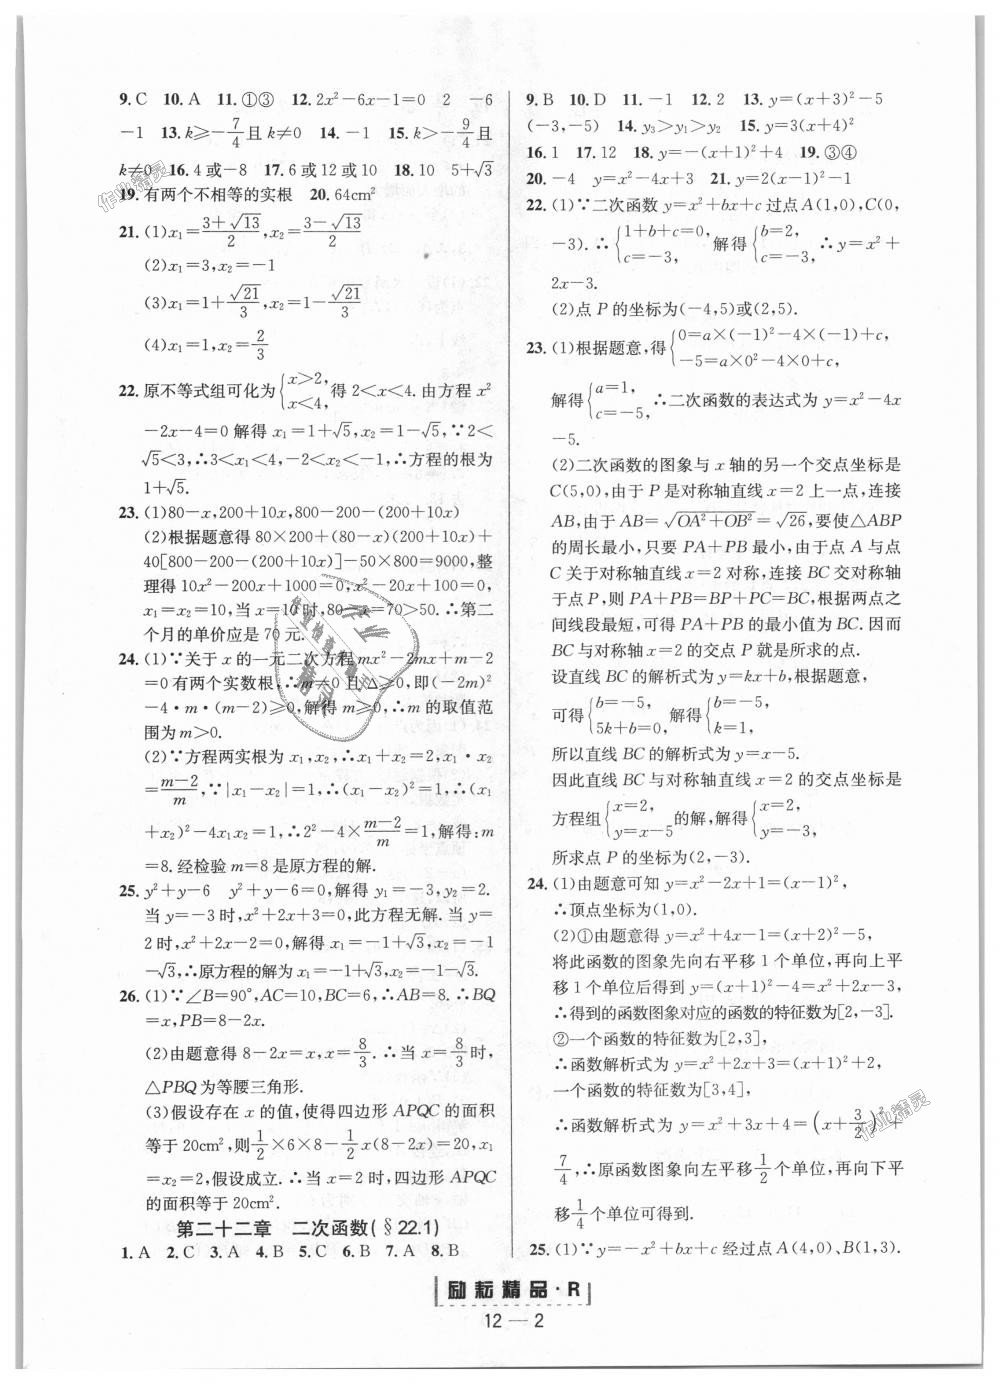 9. C 10. A 11. ①③ 12. 2x²-6x-1=0 2 -6
-1 13. k≥-7/4且 k≠0 14. -1 15. k>-9/4且
k≠0 16. 4 或-8 17. 6 或 12 或 10 18. 10 5+√3
19. 有两个不相等的实根 20. 64cm²
21. (1)x₁=(3+√13)/2,x₂=(3-√13)/2
(2)x₁=3,x₂=-1
(3)x₁=1+√21/3,x₂=1-√21/3
(4)x₁=1,x₂=2/3
22. 原不等式组可化为{x>2, x<4,得 2<x<4. 由方程 x²
-2x-4=0 解得 x₁=1+√5,x₂=1-√5,∵2<
√5<3,∴3<x₁<4,-2<x₂<-1,∴方程的根为
1+√5.
23. (1)80-x,200+10x,800-200-(200+10x)
(2)根据题意得 80×200+(80-x)(200+10x)+
40[800-200-(200+10x)]-50×800=9000,整
理得 10x²-200x+1000=0,x²-20x+100=0,
x₁=x₂=10,当 x=10 时,80-x=70>50. ∴第二
个月的单价应是 70 元.
24. (1)∵关于 x 的一元二次方程 mx²-2mx+m-2
=0 有两个实数根,∴m≠0 且△≥0,即(-2m)²
-4·m·(m-2)≥0,解得 m≥0,∴m 的取值范
围为 m>0.
(2)∵方程两实根为 x₁,x₂,∴x₁+x₂=2,x₁·x₂
=(m-2)/m,∵|x₁-x₂|=1,∴(x₁-x₂)²=1,∴(x₁
+x₂)²-4x₁x₂=1,∴2²-4×(m-2)/m=1,解得:m
=8. 经检验 m=8 是原方程的解.
25. y²+y-6 y²+y-6=0,解得 y₁=-3,y₂=2.
当 y=-3 时,x²+2x+3=0,此方程无解. 当 y=
2时,x²+2x-2=0,解得 x₁=-1+√3,x₂=-1
-√3,∴原方程的解为 x₁=-1+√3,x₂=-1-√3.
26. (1)∵∠B=90°,AC=10,BC=6,∴AB=8. ∴BQ
=x,PB=8-2x.
(2)由题意得 8-2x=x,x=8/3. ∴当 x=8/3时,
△PBQ 为等腰三角形.
(3)假设存在 x 的值,使得四边形 APQC 的面积
等于 20cm²,则1/2×6×8-1/2x(8-2x)=20,x₁
=x₂=2,假设成立. ∴当 x=2 时,四边形 APQC
的面积等于 20cm².
第二十二章 二次函数(§22.1)
1. A 2. C 3. A 4. B 5. C 6. B 7. A 8. B
9. B 10. D 11. -1 12. 2 13. y=(x+3)²-5
(-3,-5) 14. y₃>y₁>y₂ 15. y=3(x+4)²
16. 1 17. 12 18. y=-(x+1)²+4 19. ③④
20. -4 y=x²-4x+3 21. y=2(x-1)²-1
22. (1)∵二次函数 y=x²+bx+c 过点 A(1,0),C(0,
-3). ∴{1+b+c=0, c=-3, 解得{b=2, c=-3, ∴y=x²+
2x-3.
(2)点 P 的坐标为(-4,5)或(2,5).
23. (1)根据题意,得{0=a×(-1)²-4×(-1)+c, -5=a×0²-4×0+c,
解得{a=1, c=-5, ∴二次函数的表达式为 y=x²-4x
-5.
(2)二次函数的图象与 x 轴的另一个交点坐标是
C(5,0),由于 P 是对称轴直线 x=2 上一点,连接
AB,由于 AB=√(OA²+OB²)=√26,要使△ABP
的周长最小,只要 PA+PB 最小,由于点 A 与点
C 关于对称轴直线 x=2 对称,连接 BC 交对称轴
于点 P,则 PA+PB=BP+PC=BC,根据两点之
间线段最短,可得 PA+PB 的最小值为 BC. 因而
BC 与对称轴 x=2 的交点 P 就是所求的点.
设直线 BC 的解析式为 y=kx+b,根据题意,
可得{b=-5, 5k+b=0, 解得{b=-5, k=1,
所以直线 BC 的解析式为 y=x-5.
因此直线 BC 与对称轴直线 x=2 的交点坐标是
方程组{x=2, y=x-5的解,解得{x=2, y=-3,
所求点 P 的坐标为(2,-3).
24. (1)由题意可知 y=x²-2x+1=(x-1)²,
∴顶点坐标为(1,0).
(2)①由题意得 y=x²+4x-1=(x+2)²-5,
将此函数的图象先向右平移 1 个单位,再向上平
移 1 个单位后得到 y=(x+1)²-4=x²+2x-3,
∴得到的函数图象对应的函数的特征数为[2,-3].
②一个函数的特征数为[2,3],
∴函数解析式为 y=x²+2x+3=(x+1)²+2,
一个函数的特征数为[3,4],
∴函数解析式为 y=x²+3x+4=(x+3/2)²+
7/4,∴原函数图象向左平移1/2个单位,再向下平
移1/4个单位可得到.
25. (1)∵y=-x²+bx+c 经过点 A(4,0)、B(1,3).
励耘精品·R
12—2
作业精灵
作业精灵